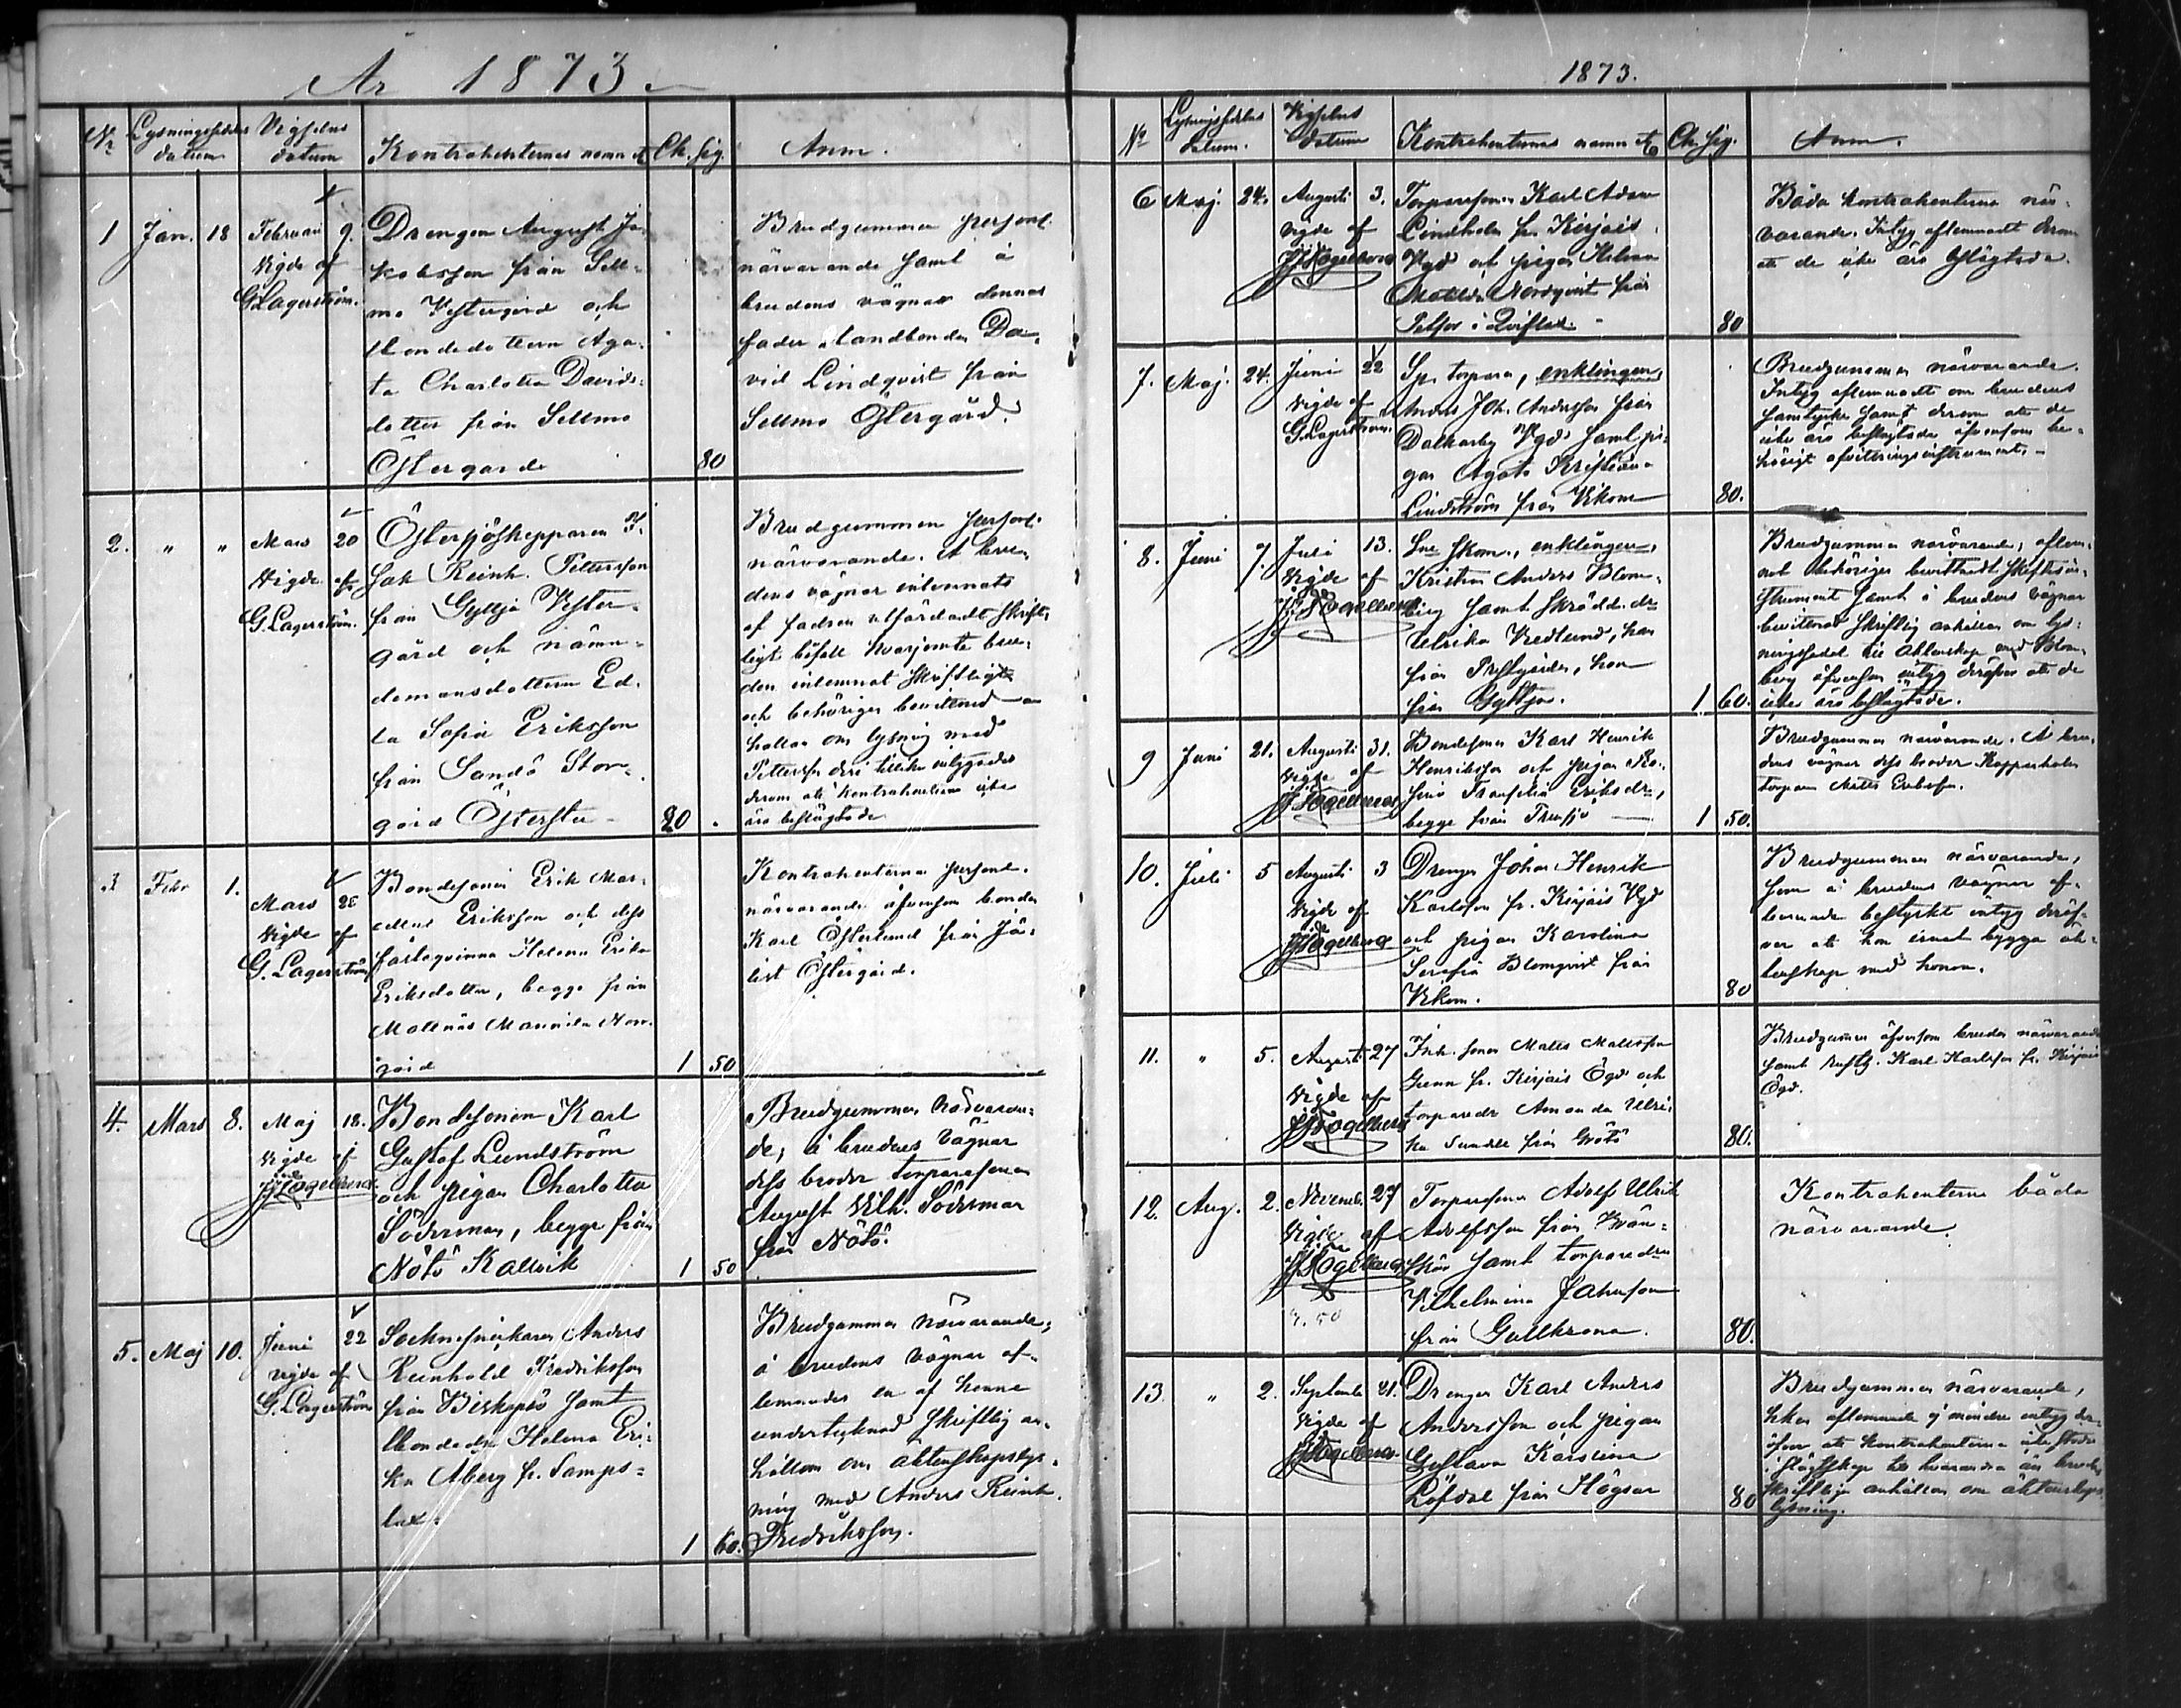 År 1873.
Nr Lysningssedelns datum Vigselns datum Kontrahenternas namn etc Ch. Sig. Anm.
1 Jan. 18 Februari 9. Vigde af G. Lagerström.
Drengen August Ja-
kobsson från Sell-
mo Vestergård och
bondedottern Aga-
ta Charlotta Davids-
dotter från Sellmo
Östergårde
80
Brudgummen personl.
närvarande samt å
brudens vägnar dennes
fader, landbonden Da-
vid Lindqvist från
Sellmo Östergård.
2. " " Mars 20 Vigde af G. Lagerström.
Östersjöskepparen I-
sak Reinh. Pettersson
från Gyttja Vester-
gård och nämn-
demansdottern Ed-
la Sofia Eriksson
från Sandö Stor-
gård
20 .
Brudgummen personl.
närvarande. Å bru-
dens vägnar inlemnats
af fadren utfärdadt skrift-
ligt bifall hvarjemte bru-
den inlemnat skriftligt
och behörigen bevittnad an-
hållan om lysning med
Pettersson deri tillika intygades
derom att kontrahenterna icke
äro beslägtade
3 Febr 1. Mars 20 Vigde af G. Lagerström
Bondesonen Erik Mar-
cellus Eriksson och dess
fästeqvinna Helena Erika
Eriksdotter, begge från
Mattnäs Mannila Norr-
gård
1 50
Kontrahenterna personl.
närvarande äfvensom bonden
Karl Österlund från Jä-
list Östergård.
4. Mars 8. Maj 18. Vigde af J. Fogelberg.
Bondesonen Karl
Gustaf Lundström
och pigan Charlotta
Söderman, begge från
Nötö Kallvik
1 50
Brudgummen närvaran-
de, å brudens vägnar
dess broder torparesonen
August Vilh. Söderman
från Nötö.
5. Maj 10. Juni 22 vigde af G. Lagerström
Sockneskräddaren Anders
Reinhold Fredriksson
från Biskopsö samt
bondedr Helena Eri-
ka Åberg fr. Lomps-
lax.
1 60.
Brudgummen närvarande;
å brudens vägnar af-
lemnades en af henne
undertecknad skriftlig an-
hållan om äktenskapslys-
ning med Anders Reinh.
Fredriksson.
1873.
No Lysningssedelns datum. Vigselns datum Kontrahenternas namn etc Ch. Sig. Anm.
6 Maj. 24. Augusti 3. vigde af J. Fogelberg
Torparesonen Karl Adam
Lindholm fr. Kirjais
Vgd och pigan Helena
Matilda Nordqvist från
80
Båda kontrahenterna när-
varande. Intyg aflemnadt derom
att de icke äro beslägtade.
7. Maj. 24. Juni 22 Vigde af G. Lagerström.
Sp. torparen, enklingen
Anders Joh. Andersson från
Dalkarby Vgd samt pi-
gan Agata Kristina
Lindström från Vikom
80.
Brudgummen närvarande.
Intyg aflemnadt om brudens
samtycke samt derom att de
icke äro beslägtade äfvensom be-
hörigt afvittringsinstrument.
8. Juni 7. Juli 13. Vigde af J. Fogelberg
Sne skom., enklingen,
Kristian Anders Blom-
berg samt skrädd.dr
Ulrika Vedlund, han
från Prestgården, hon
från Gyttja.
1 60.
Brudgummen närvarande, aflem-
nat behörigen bevittnadt skiftesin-
strument samt å brudens vägnar
bevittnad skriftlig anhållan om lys-
ningssedel till äktenskap med Blom-
berg äfvensom intyg deröfver att de
icke äro beslägtade.
9 Juni 21. Augusti 31. Vigde af J. Fogelberg
Bondesonen Karl Henrik
Henriksson och pigan Ro-
sina Eriksdr,
begge från
1 50.
Brudgummen närvarande. Å bru-
dens vägnar dess broder
torparen Matts Eriksson.
10. Juli 5 Augusti 3 Vigde af J. Fogelberg
Drengen Johan Henrik
Karlsson fr. Kirjais Vgd
och pigan Karolina
Serafia Blomqvist från
Vikom.
80
Brudgummen närvarande,
som å brudens vägnar af-
lemnade bestyrkt intyg deröf-
ver att hon ernat bygga äk-
tenskap med honom.
11. " 5. Augusti 27 Vigde af J. Fogelberg
Inh. sonen Matts Mattsson
Grenn fr. Kirjais Ögd och
torparedr Amanda Ulri-
ka Sundell från Grötö
80.
Brudgummen äfvensom bruden närvarande
samt Karl Karlsson fr. Kirjais
Ögd.
12. Aug. 2. Novemb. 27 Vigde af J. Fogelberg
Torparesonen Adolf Ulrik
Adolfsson från
samt torparedr
Vilhelmina Johansson
från Gullkrona.
80.
Kontrahenterna båda
närvarande.
13. " 2. Septemb 21. Vigde af J. Fogelberg
Drengen Karl Anders
Andersson och pigan
Gustava Karolina
Löfdal från Högsar
80
Brudgummen närvarande,
hvilken aflemnade ej mindre intyg der-
öfver att kontrahenterna icke stode
i slägtskap till hvarandra än brudens
skriftliga anhållan om äktenskaps-
lysning.